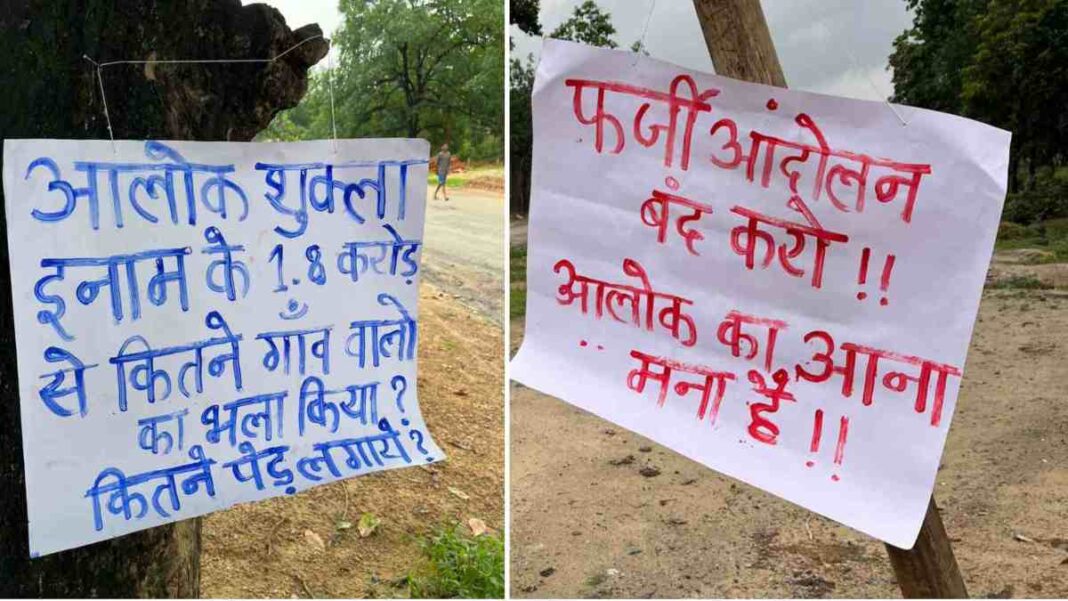 आलोक शुक्ला
इनाम के 1.8 करोड़
से कितने गाँव वालो
का भला किया?
कितने पेड़ लगाये?
फर्जी आंदोलन
बंद करो!!
आलोक का आना
मना है!!